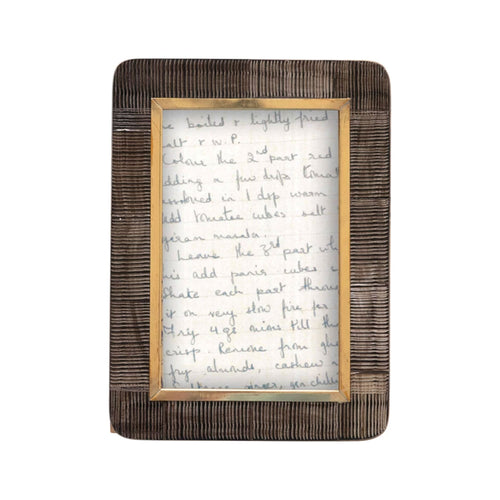 boiled & lightly fried
salt & W.P.
Colour the 2nd part red
adding a few drops tomat
dissolved in 1 dsp warm
add tomatoe cubes salt
garam masala.
Leave the 3rd part wh
this add panir cubes &
Shake each part throu
it on very slow fire for
Fry 4 ozs onions till th
crisp. Remove from gh
fry almonds, cashew n